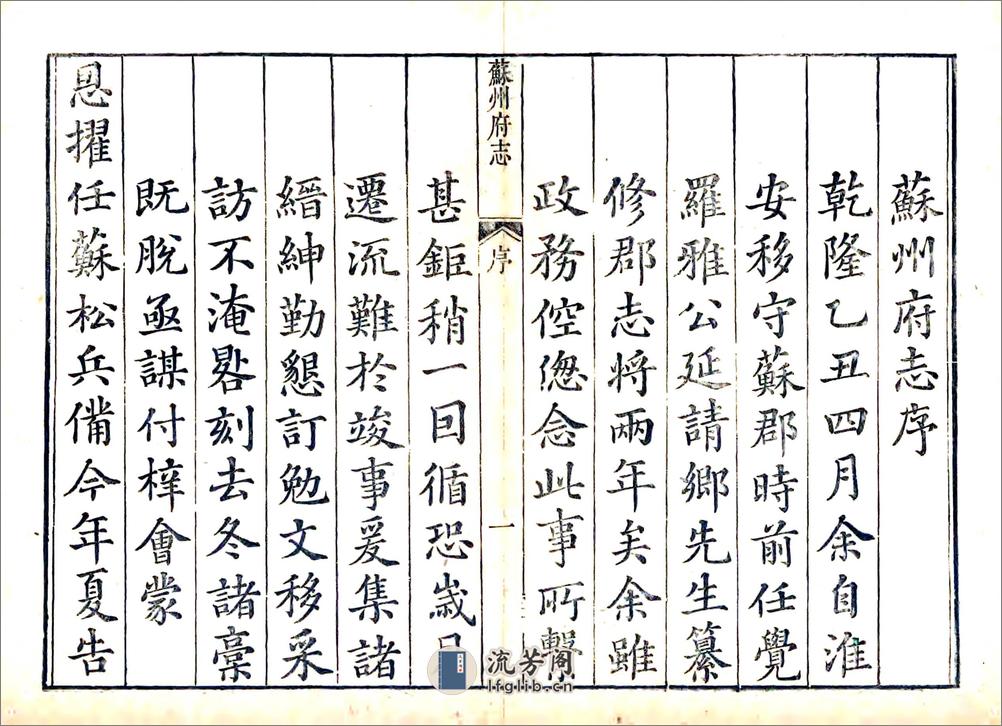 蘇州府志序
乾隆乙丑四月余自淮
安移守蘇郡時前任覺
羅雅公延請鄉先生纂
修郡志將兩年矣余雖
政務倥偬念此事所繫
蘇州府志
序
一
甚鉅稍一因循恐歲月
遷流難於竣事爰集諸
縉紳勤懇訂勉文移采
訪不淹晷刻去冬諸稾
既脫亟謀付梓會蒙
恩擢任蘇松兵備今年夏告
流芳阁
lfglib.cn